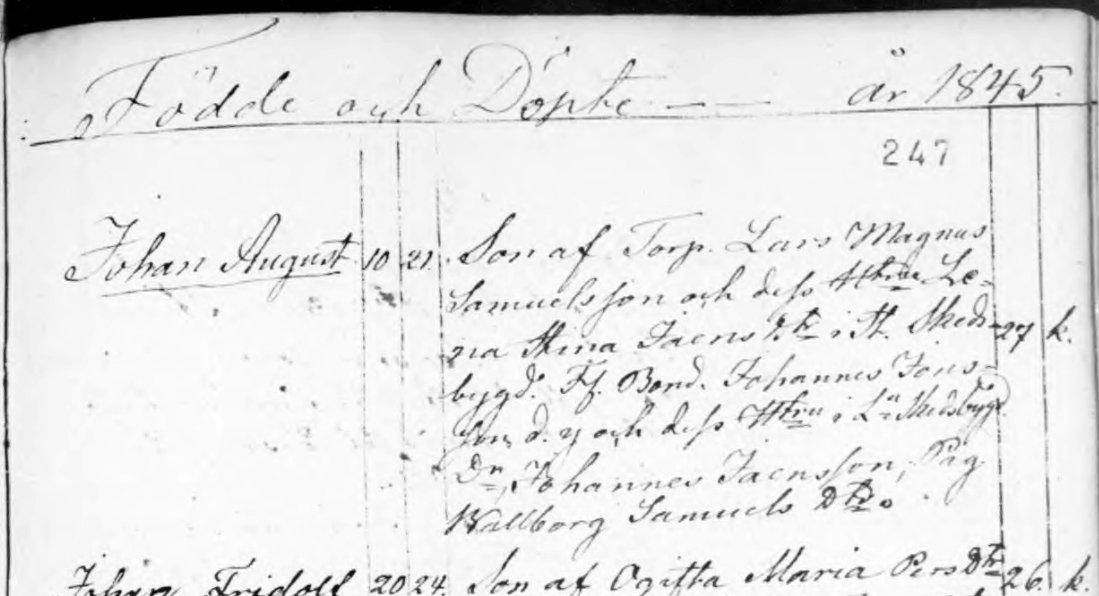 Födde och Döpte — — år 1845.
247
Johan August 10 21. Son af Torp. Lars Magnus
Samuelsson och dess Hstru Le-
na Stina Jaens Dtr i St. Skeds- 27 k.
bygd. Ff. Bond. Johannes Jons-
son, d. y och dess Hstru i La Skedsbygd
Dn, Johannes Jaensson, Pig
Wallborg Samuels Dtr.
Johan Fridolf 20 24. Son af Ogifta Maria Pers Dtr 26. k.